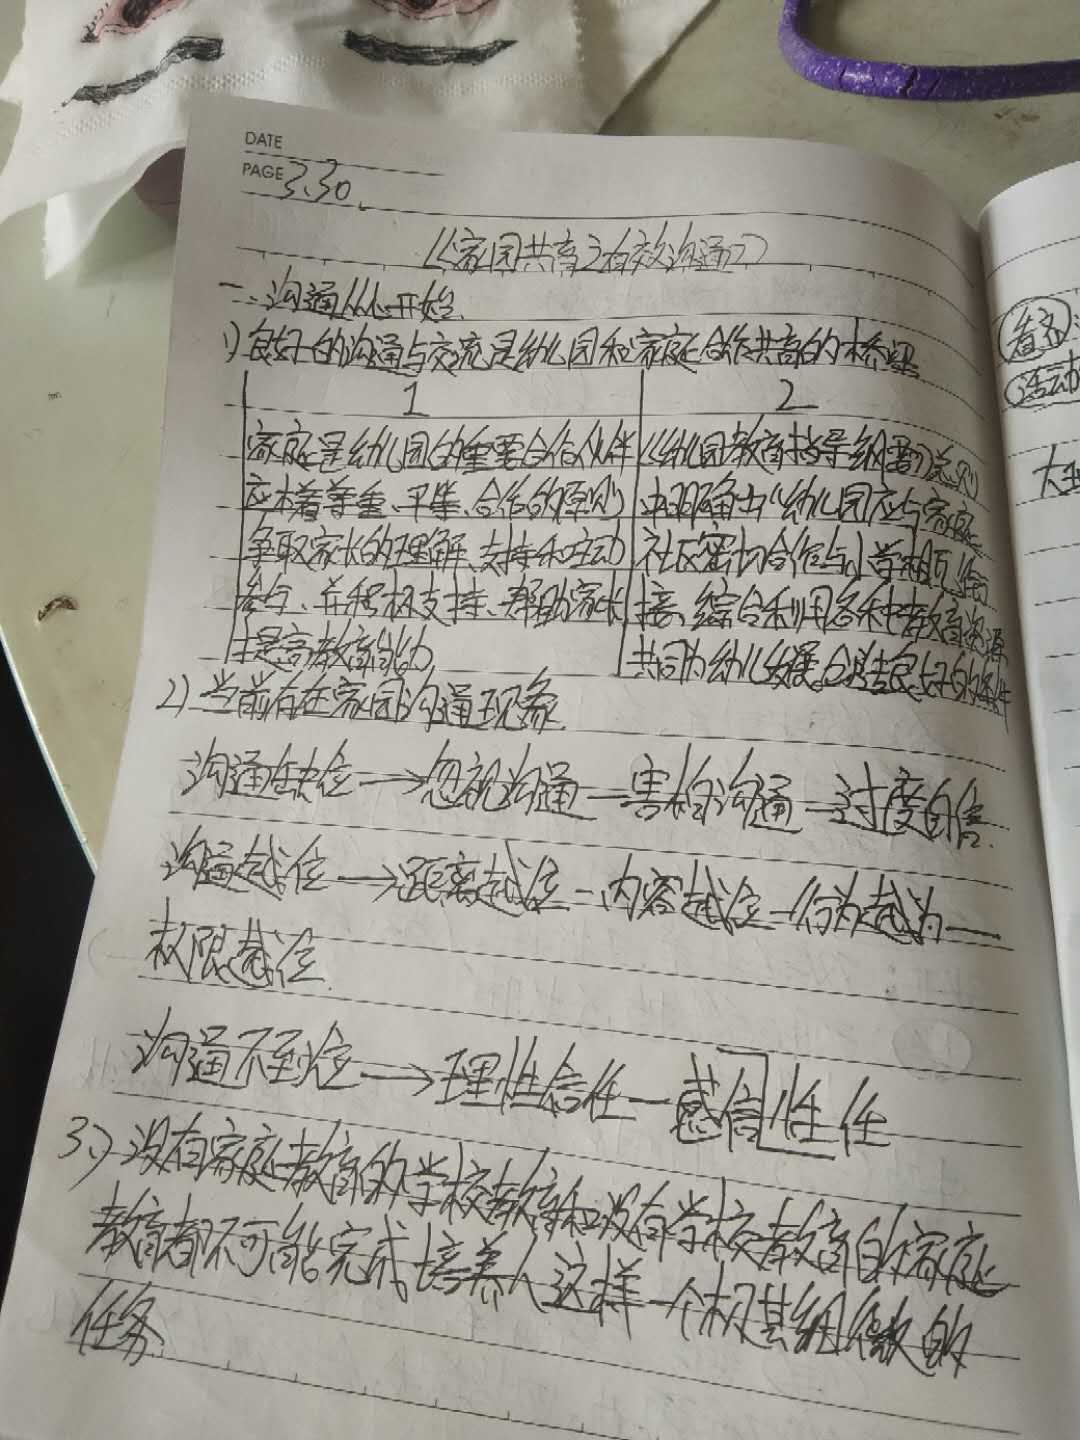 DATE
PAGE 3.30.
《家园共育之有效沟通》
一、沟通从心开始
1) 良好的沟通与交流是幼儿园和家庭合作共育的桥梁
1
家庭是幼儿园的重要合作伙伴
应本着尊重、平等、合作的原则
争取家长的理解、支持和主动
参与、并积极支持、帮助家长
提高教育能力
2
《幼儿园教育指导纲要》总则
中明确出"幼儿园应与家庭
社区密切合作与小学相互衔
接、综合利用各种教育资源
共同为幼儿发展创造良好的条件
2) 当前存在家园沟通现象
沟通缺位→忽视沟通—害怕沟通—过度自信
沟通越位→距离越位—内容越位—行为越为—
权限越位
沟通不到位→理性信任—感信性任
3、) 没有家庭教育的学校教育和没有学校教育的家庭
教育都不可能完成培养人这样一个极其细微的
任务
看
活动
大